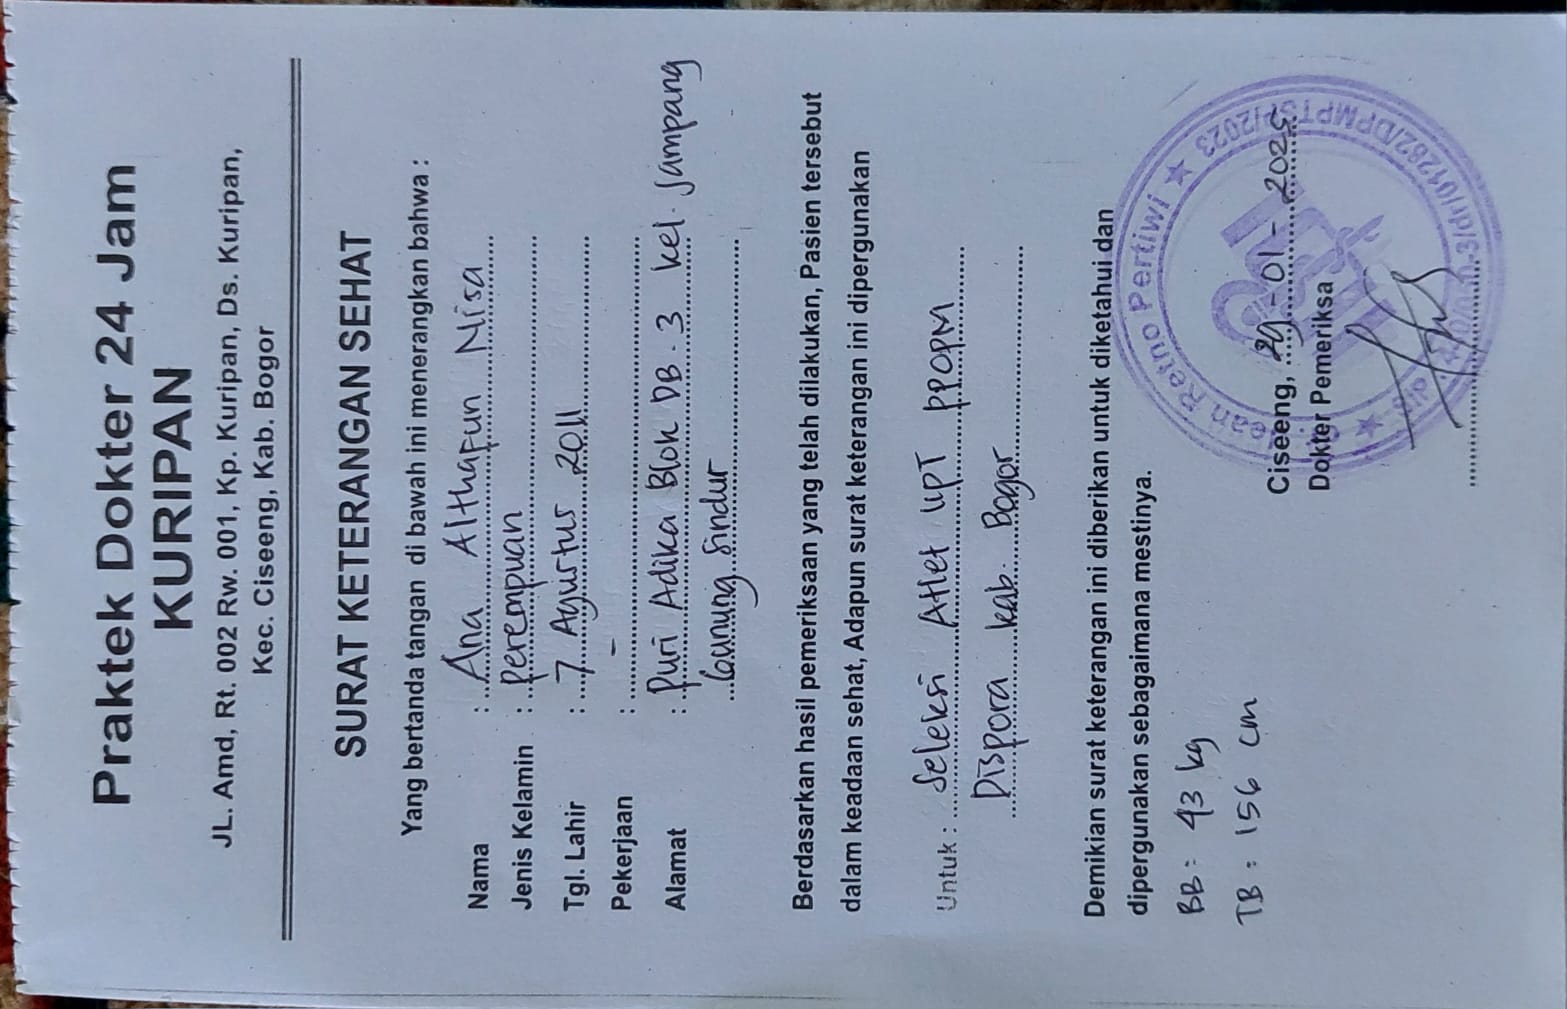 Praktek Dokter 24 Jam
KURIPAN
JL. Amd, Rt. 002 Rw. 001, Kp. Kuripan, Ds. Kuripan,
Kec. Ciseeng, Kab. Bogor
SURAT KETERANGAN SEHAT
Yang bertanda tangan di bawah ini menerangkan bahwa :
Nama : Ana Althafun Nisa
Jenis Kelamin : perempuan
Tgl. Lahir : 7 Agustus 2011
Pekerjaan : -
Alamat : Puri Adika Blok DB. 3 kel. Jampang
Gunung Sindur
Berdasarkan hasil pemeriksaan yang telah dilakukan, Pasien tersebut
dalam keadaan sehat, Adapun surat keterangan ini dipergunakan
Untuk : Seleksi Atlet UPT PPOPM
Dispora Kab. Bogor
Demikian surat keterangan ini diberikan untuk diketahui dan
dipergunakan sebagaimana mestinya.
BB : 43 kg
TB : 156 cm
Ciseeng, 29 - 01 - 2025
Dokter Pemeriksa
Retno Pertiwi